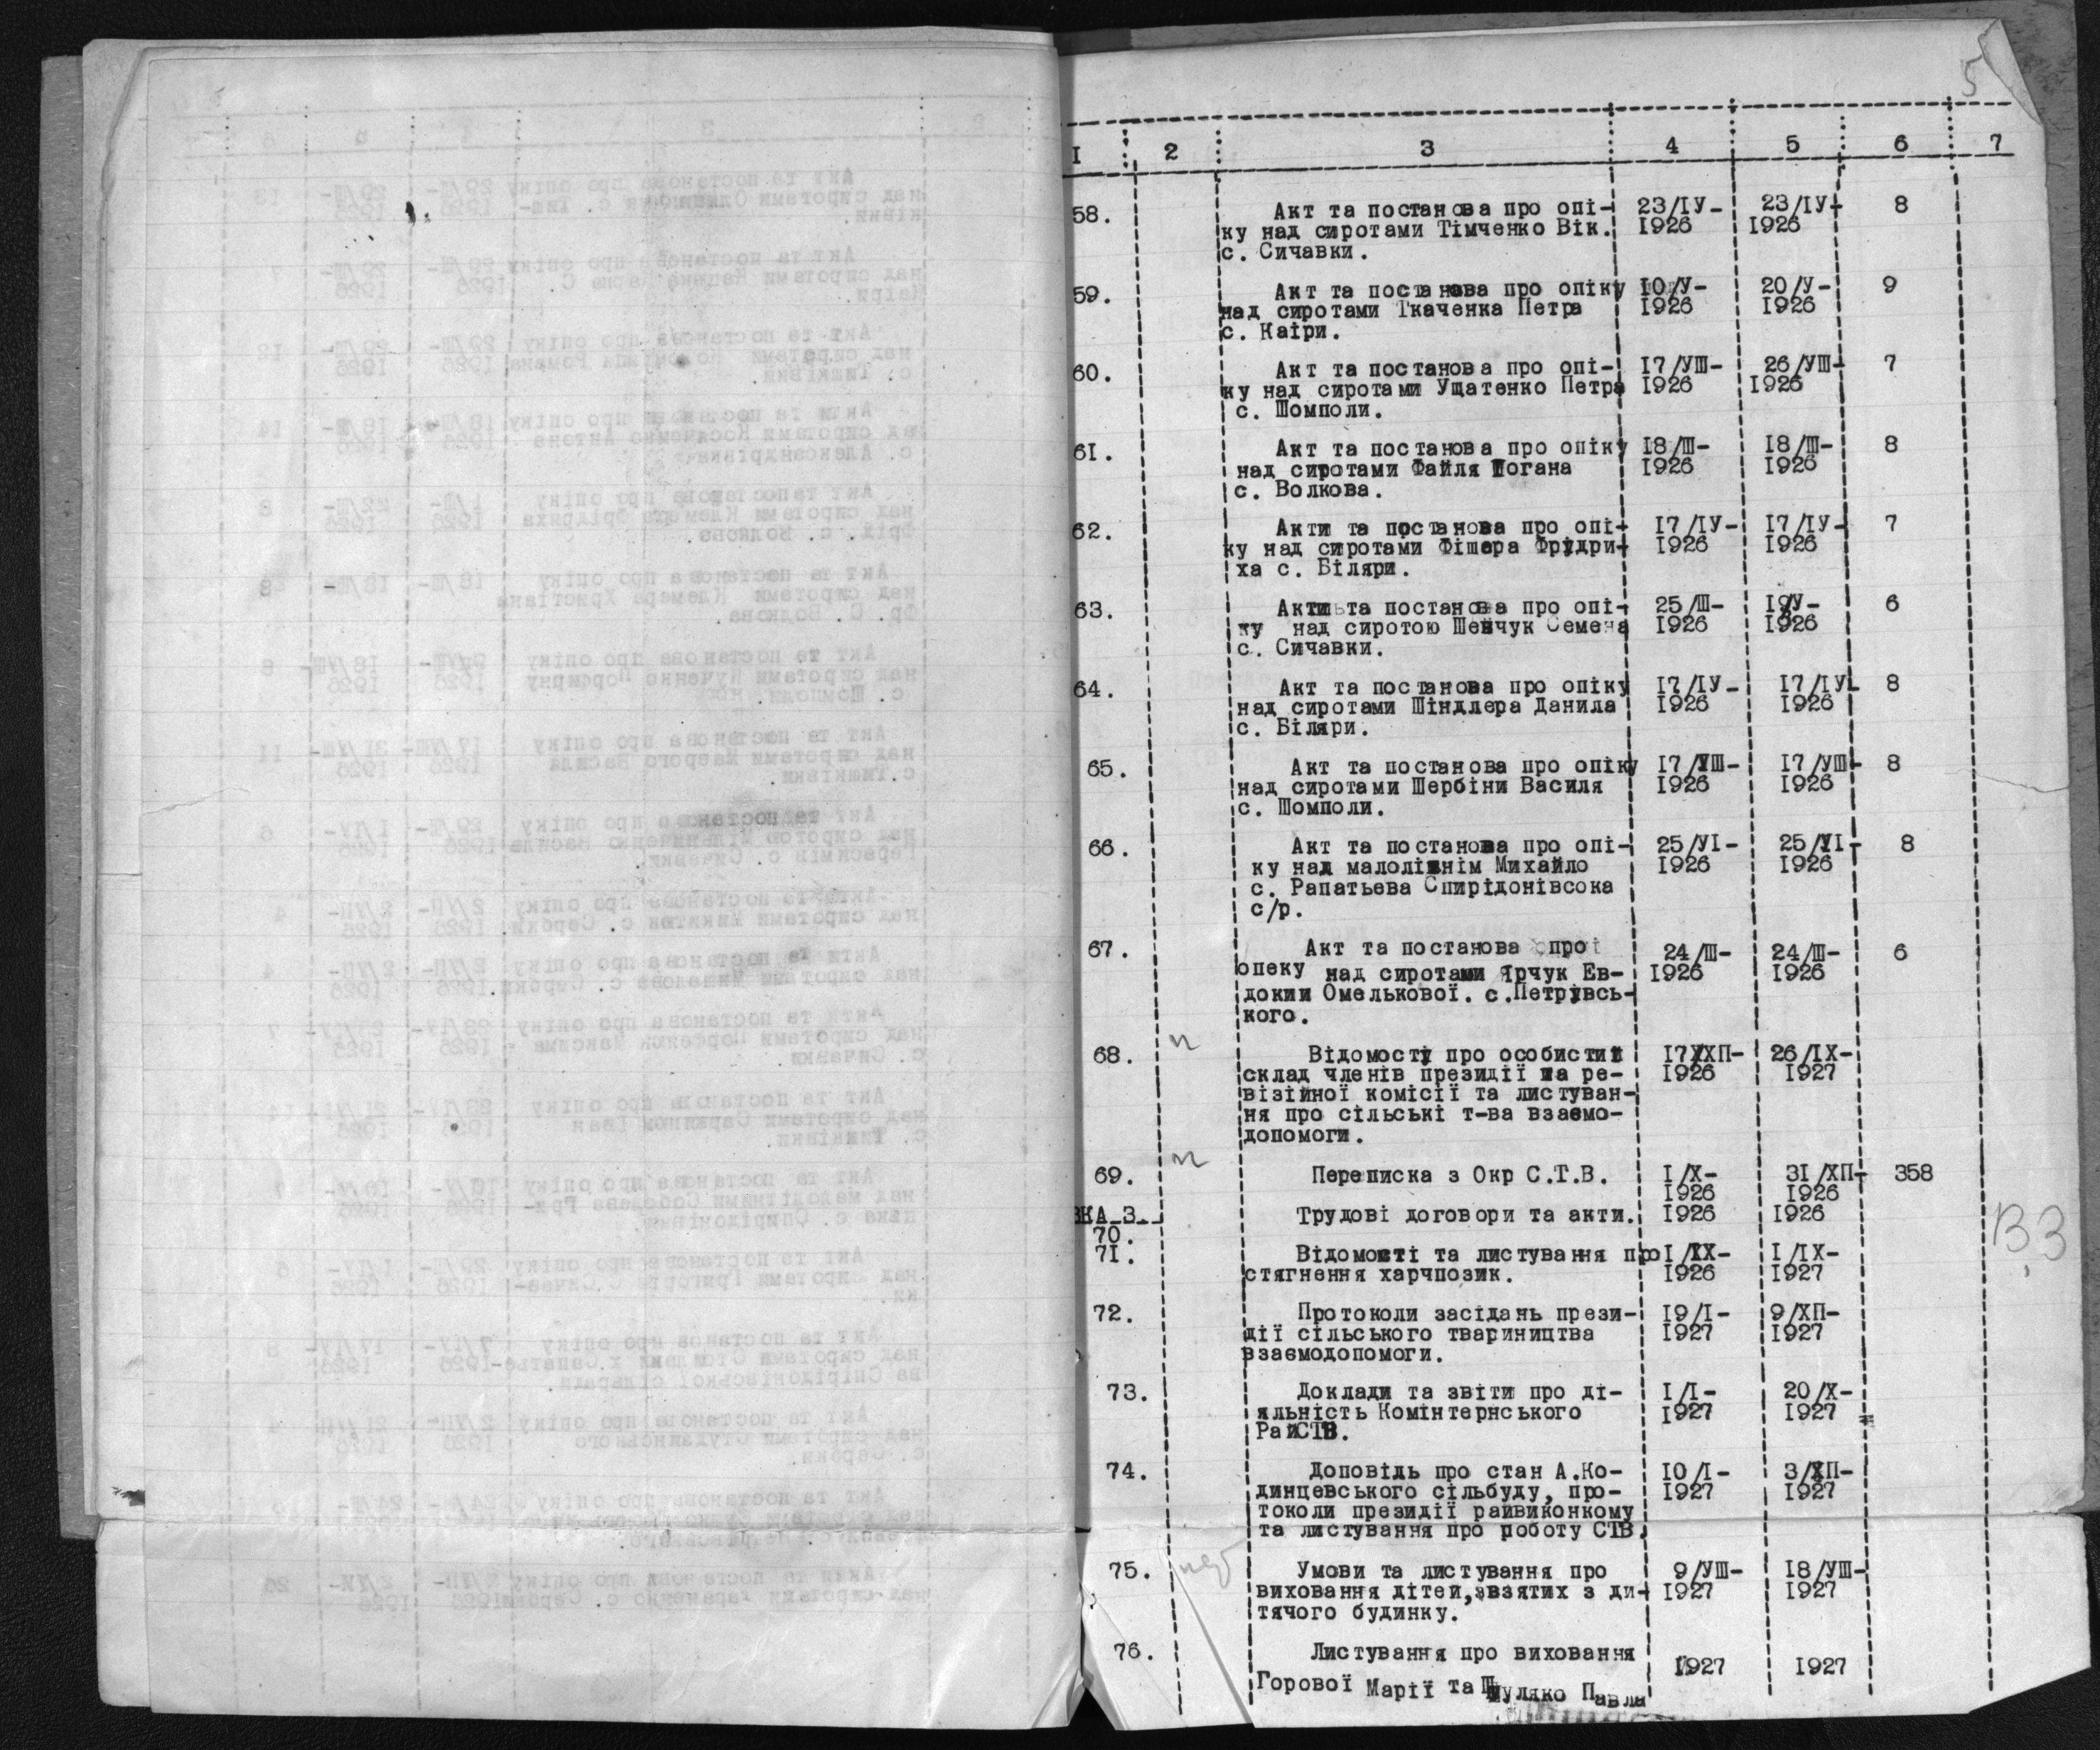 5
I 2 3 4 5 6 7
58. Акт та постанова про опі- 23/ІУ- 23/ІУ- 8
ку над сиротами Тімченко Вік. 1926 1926
с. Сичавки.
59. Акт та постанова про опіку 10/У- 20/У- 9
над сиротами Ткаченка Петра 1926 1926
с. Каіри.
60. Акт та постанова про опі- 17/УШ- 26/УШ- 7
ку над сиротами Ущатенко Петра 1926 1926
с. Шомполи.
61. Акт та постанова про опіку 18/Ш- 18/Ш- 8
над сиротами Файля Йогана 1926 1926
с. Волкова.
62. Акти та постанова про опі- 17/ІУ- 17/ІУ- 7
ку над сиротами Фішера Фрідри- 1926 1926
ха с. Біляри.
63. Акти та постанова про опі- 25/Ш- 6
ку над сиротою Шевчук Семена 1926 1926
с. Сичавки.
64. Акт та постанова про опіку 17/ІУ- 17/ІУ- 8
над сиротами Шіндлера Данила 1926 1926
с. Біляри.
65. Акт та постанова про опіку 17/УШ- 17/УШ- 8
над сиротами Шербіни Василя 1926 1926
с. Шомполи.
66. Акт та постанова про опі- 25/УІ- 25/УІ- 8
ку над малолішнім Михайло 1926 1926
с. Рапатьева Спирідонівсока
с/р.
67. Акт та постанова про 24/Ш- 24/Ш- 6
опеку над сиротами Ярчук Ев- 1926 1926
докии Омелькової. с.Петрівсь-
кого.
68. Відомості про особистий 17/ХП- 26/ІХ-
склад членів президії та ре- 1926 1927
візійної комісії та листуван-
ня про сільські т-ва взаємо-
допомоги.
69. Переписка з Окр С.Т.В. І/Х- 31/ХП- 358
1926 1926
ВКА 3. Трудові договори та акти. 1926 1926
70.
71. Відомості та листування про І/ІХ- І/ІХ-
стягнення харчпозик. 1926 1927
72. Протоколи засідань прези- 19/І- 9/ХП-
дії сільського твариництва 1927 1927
взаємодопомоги.
73. Доклади та звіти про ді- І/І- 20/Х-
яльність Комінтернського 1927 1927
РайСТВ.
74. Доповідь про стан А.Ко- 10/І- 3/ХП-
динцевського сільбуду, про- 1927 1927
токоли президії райвиконкому
та листування про роботу СТВ.
75. Умови та листування про 9/УШ- 18/УШ-
виховання дітей, взятих з ди- 1927 1927
тячого будинку.
76. Листування про виховання
Горової Марії та Шуляко Павла 1927 1927